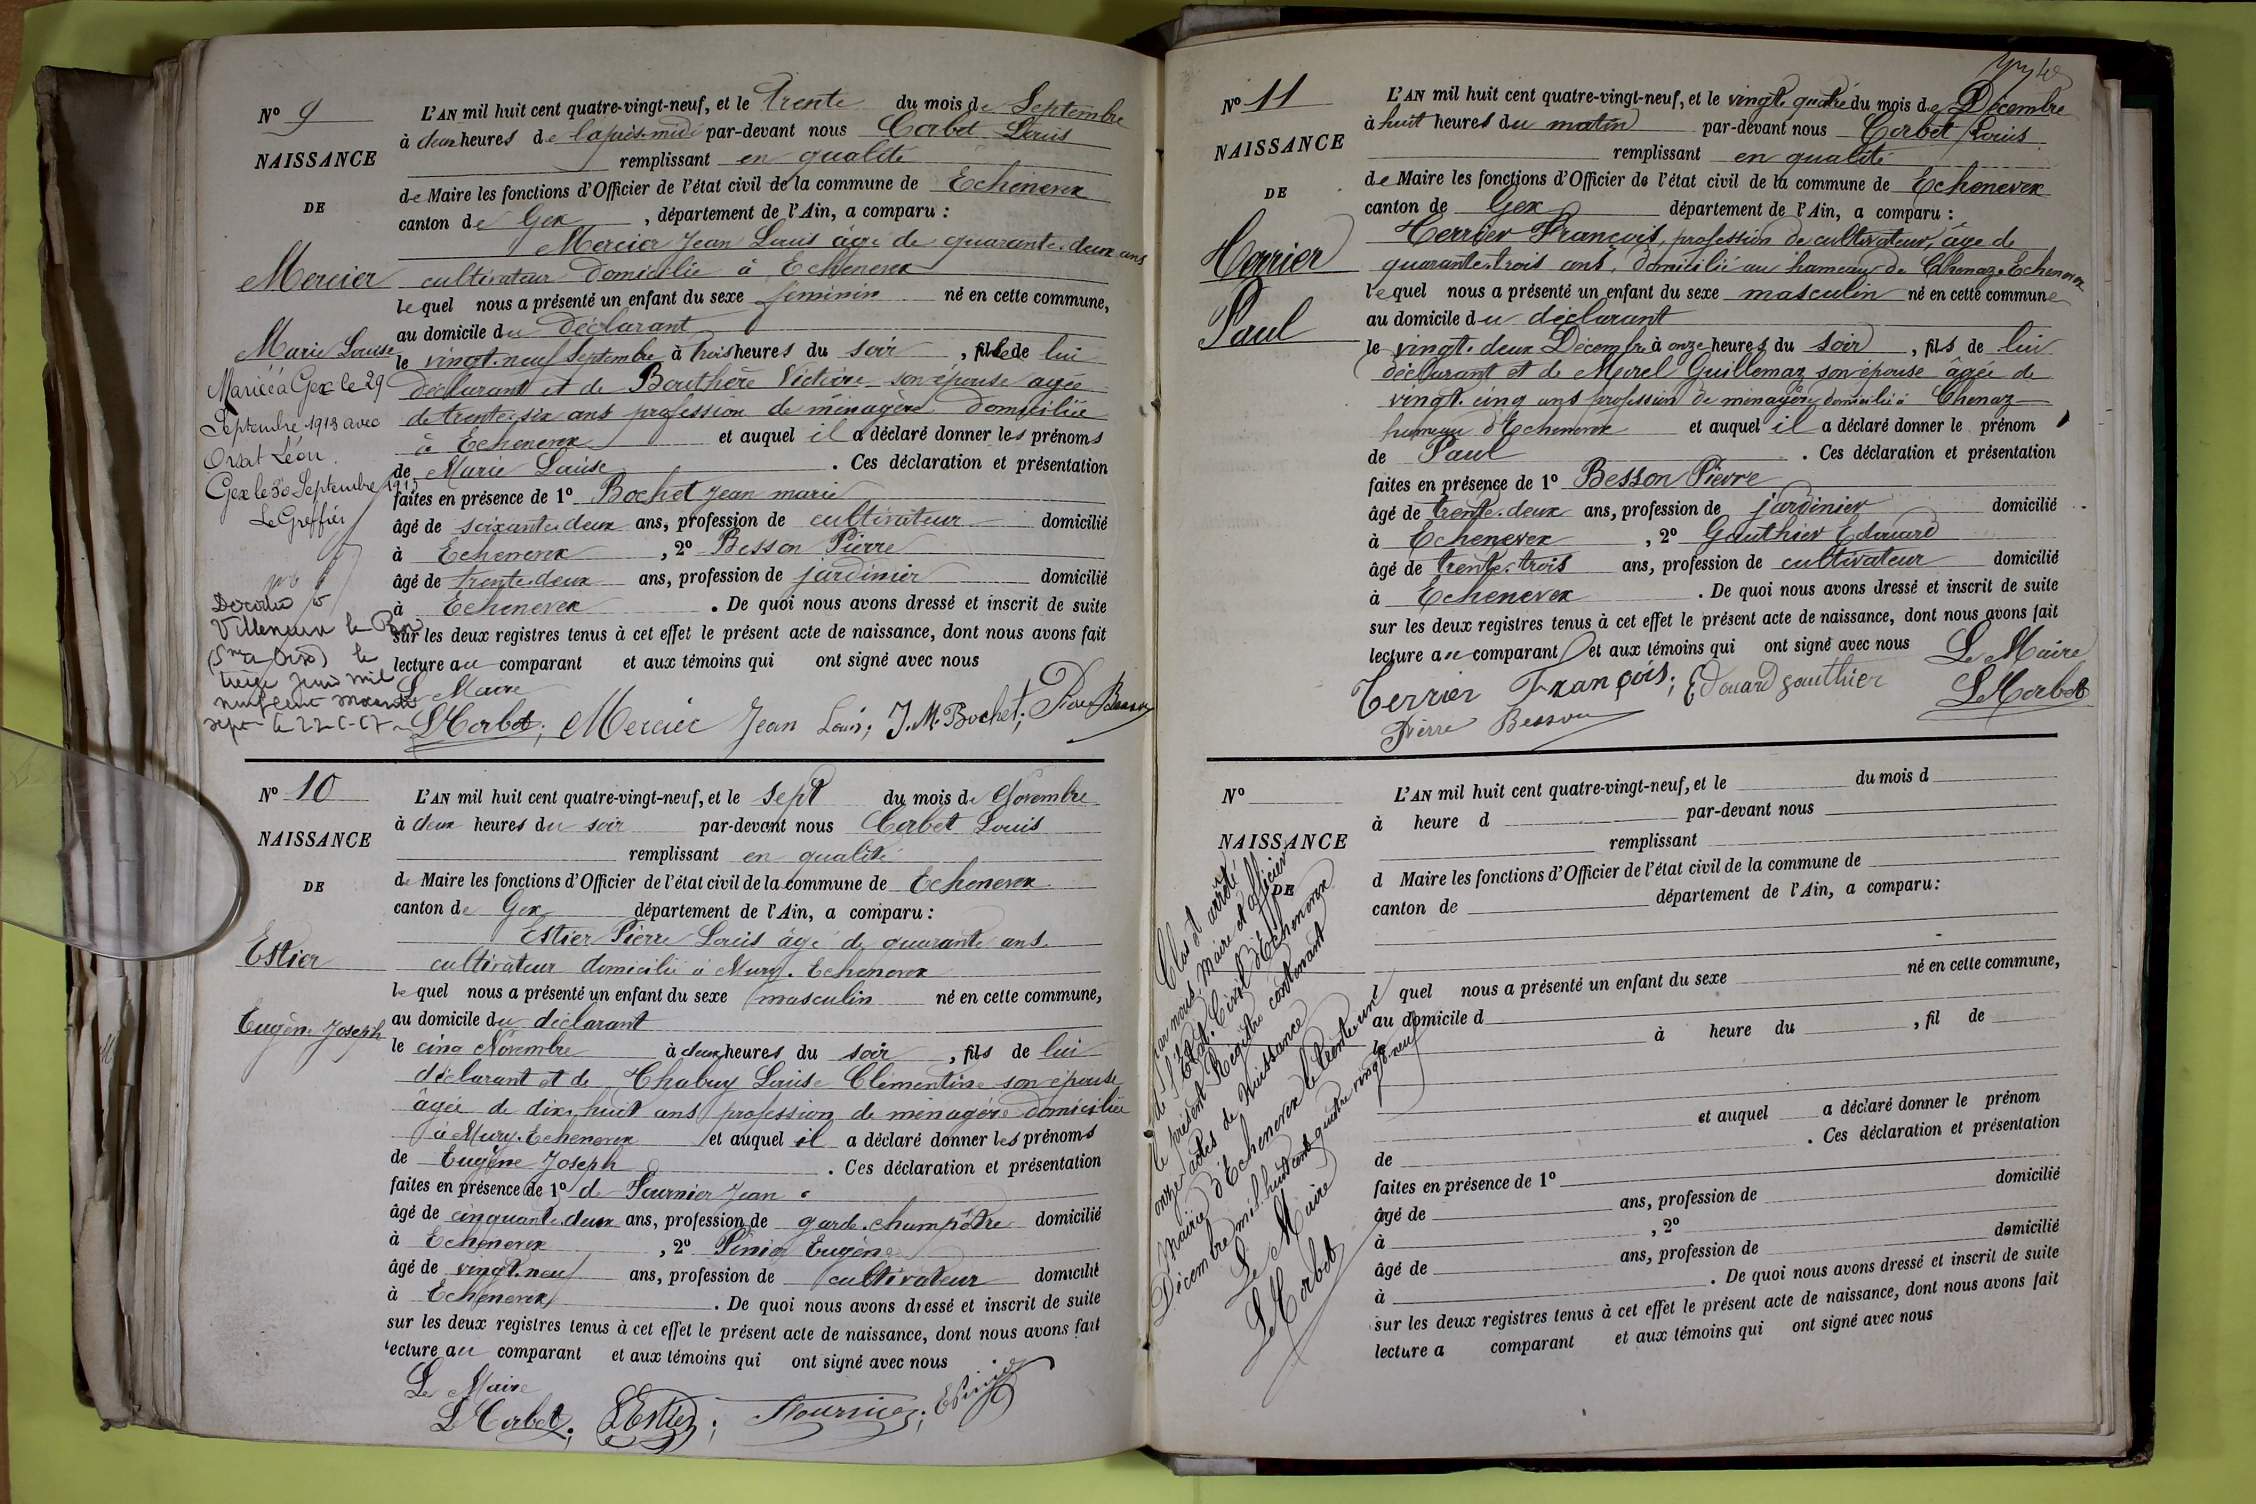 N° 9
NAISSANCE
DE
Mercier
Marie Louise
Mariée à Gex le 29
Septembre 1913 avec
Orsat Léon.
Gex le 30 Septembre 1913
Le Greffier
Villeneuve le
le
treize juin mil
neuf cent
sept le 22-6-67
L'AN mil huit cent quatre-vingt-neuf, et le trente du mois de Septembre
à deux heures de l'après-midi par-devant nous Corbet Louis
remplissant en qualité
de Maire les fonctions d'Officier de l'état civil de la commune de Echenevex
canton de Gex, département de l'Ain, a comparu :
Mercier Jean Louis âgé de quarante-deux ans
cultivateur domicilié à Echenevex
lequel nous a présenté un enfant du sexe féminin né en cette commune,
au domicile du déclarant
le vingt-neuf Septembre à trois heures du soir, fille de lui
déclarant et de Bouthère Victoire son épouse agée
de trente-six ans profession de ménagère domiciliée
à Echenevex et auquel il a déclaré donner les prénoms
de Marie Louise. Ces déclaration et présentation
faites en présence de 1° Bochet Jean marie
âgé de soixante-deux ans, profession de cultivateur domicilié
à Echenevex, 2° Besson Pierre
âgé de trente-deux ans, profession de jardinier domicilié
à Echenevex. De quoi nous avons dressé et inscrit de suite
sur les deux registres tenus à cet effet le présent acte de naissance, dont nous avons fait
lecture au comparant et aux témoins qui ont signé avec nous
Le Maire
L Corbet; Mercier Jean Louis; J. M. Bochet; Pierre Besson
N° 10
NAISSANCE
DE
Estier
Eugène Joseph
L'AN mil huit cent quatre-vingt-neuf, et le sept du mois de Novembre
à deux heures du soir par-devant nous Corbet Louis
remplissant en qualité
de Maire les fonctions d'Officier de l'état civil de la commune de Echenevex
canton de Gex département de l'Ain, a comparu :
Estier Pierre Louis âgé de quarante ans
cultivateur domicilié à Mury. Echenevex
lequel nous a présenté un enfant du sexe masculin né en cette commune,
au domicile du déclarant
le cinq Novembre à deux heures du soir, fils de lui
déclarant et de Chabuy Louise Clémentine son épouse
âgée de dix-huit ans profession de ménagère domiciliée
à Mury. Echenevex et auquel il a déclaré donner les prénoms
de Eugène Joseph. Ces déclaration et présentation
faites en présence de 1° de Fournier Jean
âgé de cinquante-deux ans, profession de garde-champêtre domicilié
à Echenevex, 2° Eugène
âgé de vingt-neuf ans, profession de cultivateur domicilié
à Echenevex. De quoi nous avons dressé et inscrit de suite
sur les deux registres tenus à cet effet le présent acte de naissance, dont nous avons fait
lecture au comparant et aux témoins qui ont signé avec nous
Le Maire
L Corbet; LEstier; Fournier;
N° 11
NAISSANCE
DE
Terrier
Paul
L'AN mil huit cent quatre-vingt-neuf, et le vingt-quatre du mois de Décembre
à huit heures du matin par-devant nous Corbet Louis
remplissant en qualité
de Maire les fonctions d'Officier de l'état civil de la commune de Echenevex
canton de Gex département de l'Ain, a comparu :
Terrier François, profession de cultivateur, âge de
quarante-trois ans, domicilié au hameau de Chenaz Echenevex
lequel nous a présenté un enfant du sexe masculin né en cette commune
au domicile du déclarant
le vingt-deux Décembre à onze heures du soir, fils de lui
déclarant et de Morel Guillemaz son épouse âgée de
vingt-cinq ans profession de ménagère domicilié à Chenaz
hameau d'Echenevex et auquel il a déclaré donner le prénom
de Paul. Ces déclaration et présentation
faites en présence de 1° Besson Pierre
âgé de trente-deux ans, profession de jardinier domicilié
à Echenevex, 2° Gauthier Edouard
âgé de trente-trois ans, profession de cultivateur domicilié
à Echenevex. De quoi nous avons dressé et inscrit de suite
sur les deux registres tenus à cet effet le présent acte de naissance, dont nous avons fait
lecture au comparant et aux témoins qui ont signé avec nous
Le Maire
Terrier François; Edouard gauthier L Corbet
Pierre Besson
N°
NAISSANCE
DE
Clos et arrêté
par nous, Maire et officier
de l'Etat-Civil d'Echenevex
le présent Registre contenant
onze actes de Naissance
Mairie d'Echenevex le trente-un
Décembre mil-huit-cent-quatre-vingt-neuf
Le Maire
L Corbet
L'AN mil huit cent quatre-vingt-neuf, et le du mois d
à heure d par-devant nous
remplissant
d Maire les fonctions d'Officier de l'état civil de la commune de
canton de département de l'Ain, a comparu :
l quel nous a présenté un enfant du sexe né en cette commune,
au domicile d
le à heure du, fil de
et auquel a déclaré donner le prénom
de. Ces déclaration et présentation
faites en présence de 1°
âgé de ans, profession de domicilié
à, 2°
âgé de ans, profession de domicilié
à. De quoi nous avons dressé et inscrit de suite
sur les deux registres tenus à cet effet le présent acte de naissance, dont nous avons fait
lecture a comparant et aux témoins qui ont signé avec nous